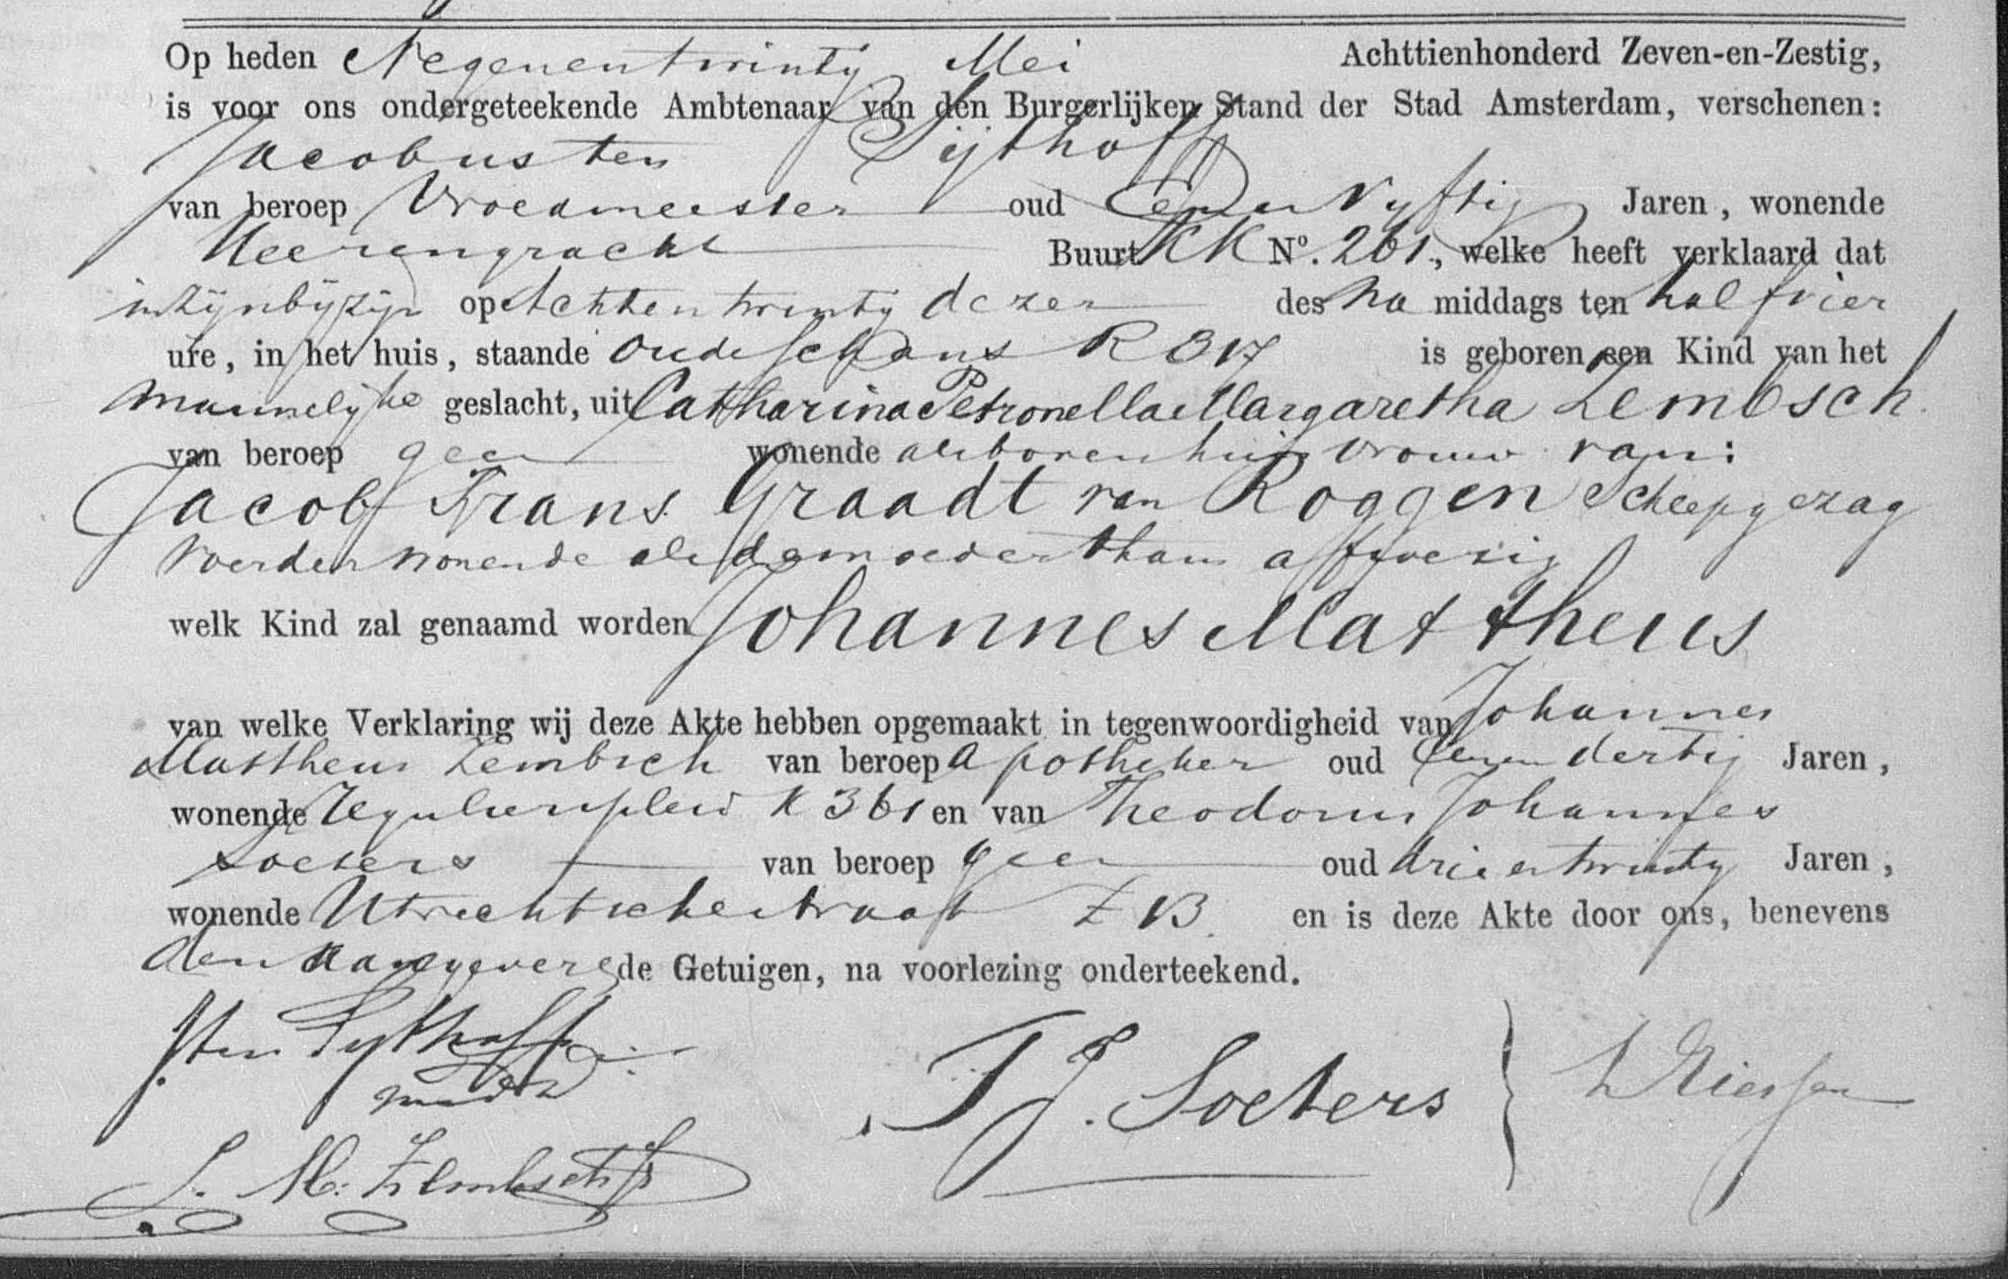 Op heden Negenentwintig Mei Achttienhonderd Zeven-en-Zestig,
is voor ons ondergeteekende Ambtenaar van den Burgerlijken Stand der Stad Amsterdam, verschenen:
Jacobus ten Sijthoff
van beroep Vroedmeester oud Eenenvyftig Jaren, wonende
Heerengracht Buurt KK No. 261, welke heeft verklaard dat
in zijn bijzijn op Achtentwintig dezer des na middags ten half vier
ure, in het huis, staande Oude Schans R 317 is geboren een Kind van het
mannelijke geslacht, uit Catharina Petronella Margaretha Zembsch
van beroep geen wonende als boven huisvrouw van:
Jacob Frans Graadt van Roggen Scheepsgezag
voerder wonende als de moeder thans affwezig
welk Kind zal genaamd worden Johannes Mattheus
van welke Verklaring wij deze Akte hebben opgemaakt in tegenwoordigheid van Johannes
Mattheus Zembsch van beroep Apotheker oud Eenendertig Jaren,
wonende Reguliersplein K 361 en van Theodorus Johannes
Soeters van beroep geen oud drieentwintig Jaren,
wonende Utrechtschestraat Z 13. en is deze Akte door ons, benevens
den aangever & de Getuigen, na voorlezing onderteekend.
J. ten Sythoff
T J. Soeters
J. M. Zembsch